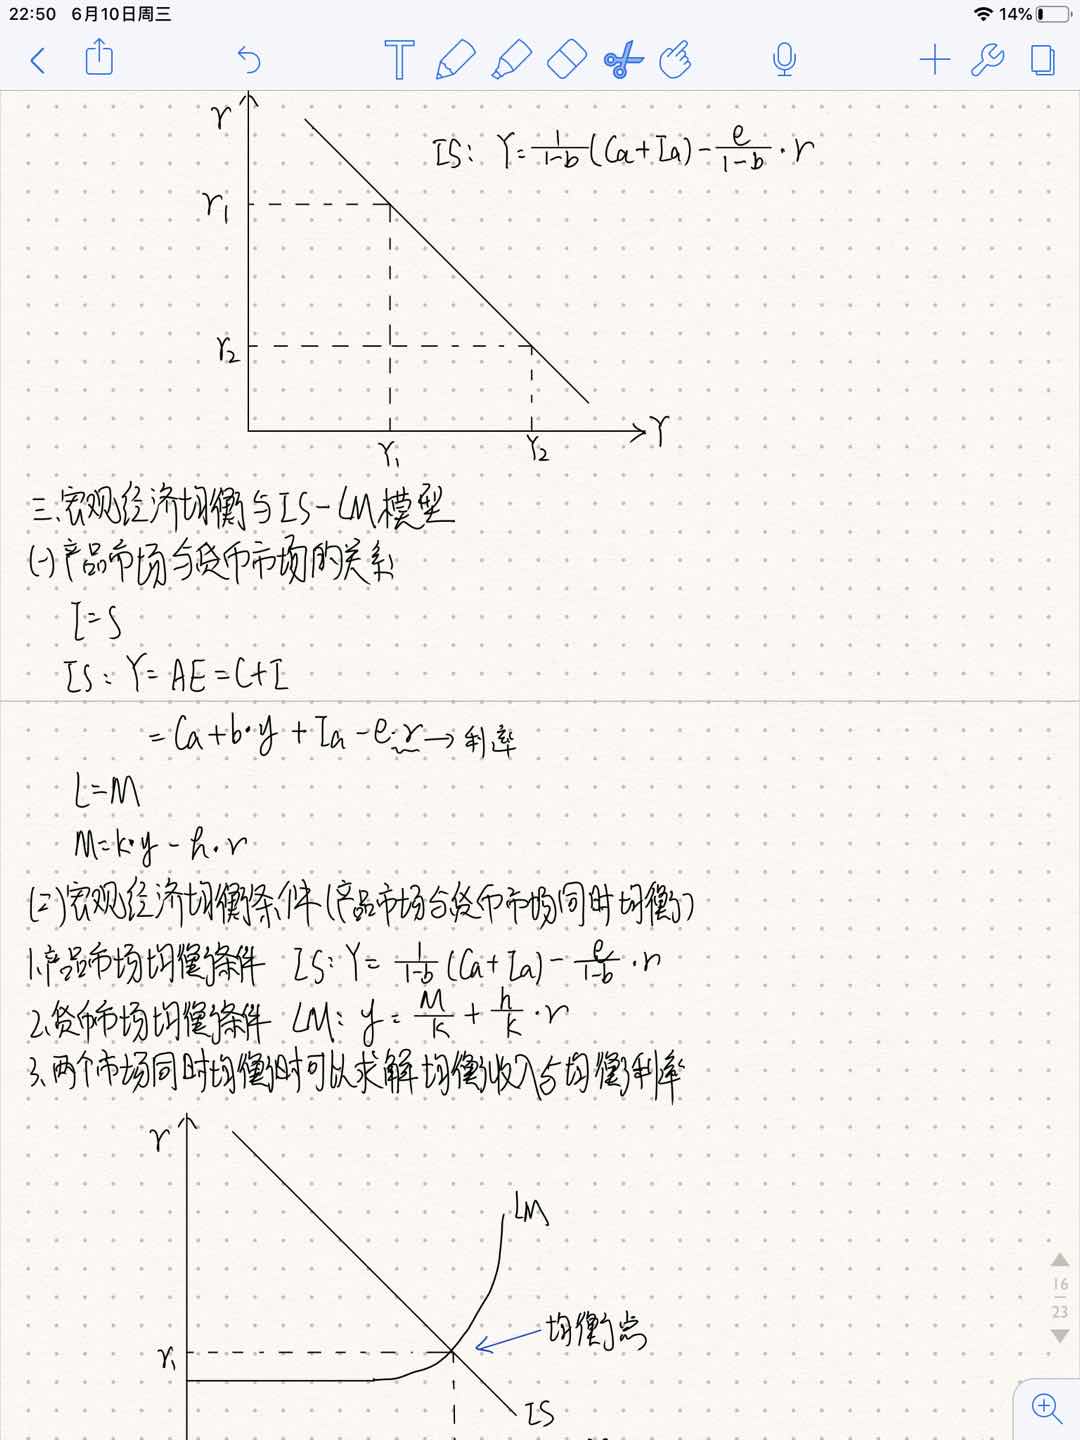 22:50 6月10日周三 14%
r
IS: Y=1/(1-b)(Ca+Ia)-e/(1-b)·r
r1
r2
Y
Y1 Y2
三、宏观经济均衡与IS-LM模型
(一)产品市场与货币市场的关系
I=S
IS: Y=AE=C+I
=Ca+b·y+Ia-e·r→利率
L=M
M=k·y-h·r
(二)宏观经济均衡条件(产品市场与货币市场同时均衡)
1.产品市场均衡条件 IS: Y=1/(1-b)(Ca+Ia)-e/(1-b)·r
2.货币市场均衡条件 LM: y=M/k+h/k·r
3.两个市场同时均衡时可以求解均衡收入与均衡利率
r
LM
16
23
均衡点
r1
IS